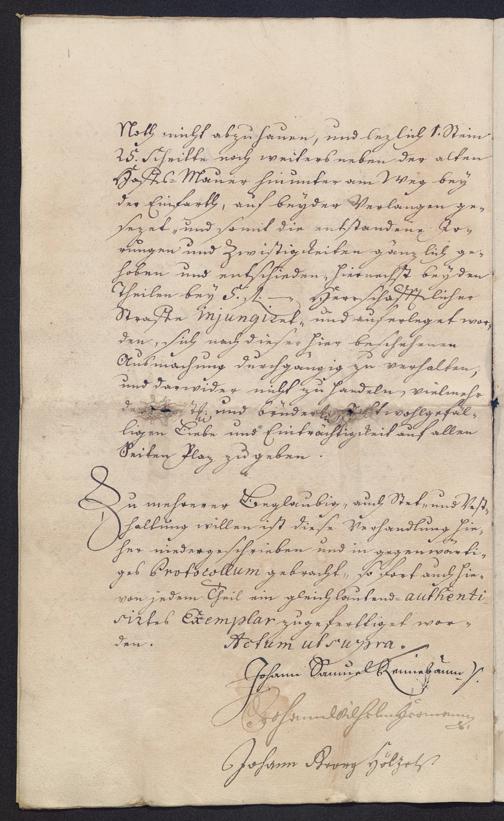 Noth nicht abzuhauen, und lezlich 1. Stein
25. Schritte noch weiters neben der alten
Mauer hinunter am Weg bey
der Einfarth, auf beyder Verlangen ge-
sezet, und somit die entstandene Ir-
rungen und Zwistigkeiten gänzlich ge-
hoben und entschieden, hiernechst beyden
Theilen bey 5. fl. Herrschafftlicher
Straffe injungiret, und auferleget wor-
den, sich nach dieser hier beschehenen
Ausmachung durchgängig zu verhalten,
und darwider nicht zu handeln, vielmehr
und brüder wohlgefäl-
ligen Liebe und Einträchtigkeit auf allen
Seiten Plaz zu geben.
Zu mehrerer Beglaubig- auch Stet- und Vest-
haltung willen ist diese Verhandlung hie-
her niedergeschrieben und in gegenwärti-
ges Protocollum gebracht, so fort auch hie-
von jedem Theil ein gleichlautend- authenti-
sirtes Exemplar zugefertiget wor-
den. Actum ut supra.
Johann Samuel
Johann Wilhelm
Johann Georg Hölzel